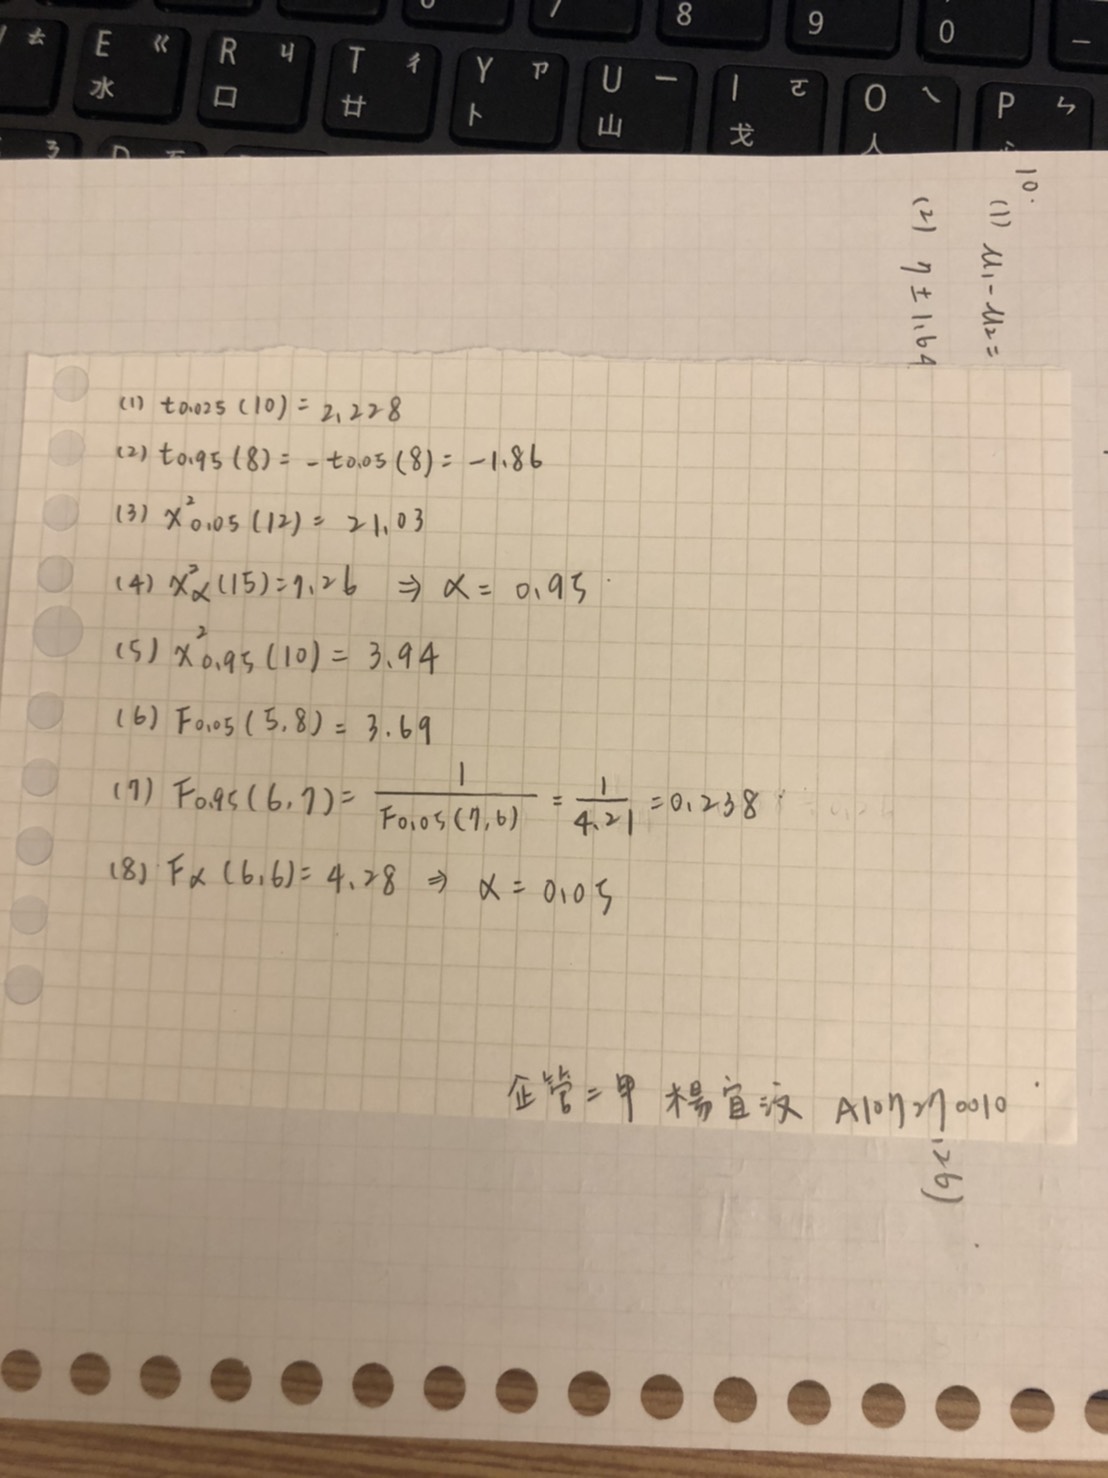 7
8
9
0
_
ㄊ
E ㄍ
水
R ㄐ
口
T ㄔ
廿
Y ㄗ
卜
U ㄧ
山
I ㄛ
戈
O ㄟ
人
P ㄣ
10.
(1) μ₁-μ₂=
(2) 7±1.64
(1) t0.025(10)=2.228
(2) t0.95(8)=-t0.05(8)=-1.86
(3) χ²0.05(12)=21.03
(4) χ²α(15)=7.26 ⇒ α=0.95
(5) χ²0.95(10)=3.94
(6) F0.05(5,8)=3.69
(7) F0.95(6,7)=1/F0.05(7,6)=1/4.21=0.238
(8) Fα(6,6)=4.28 ⇒ α=0.05
企管二甲 楊宜 A107270010
.26)